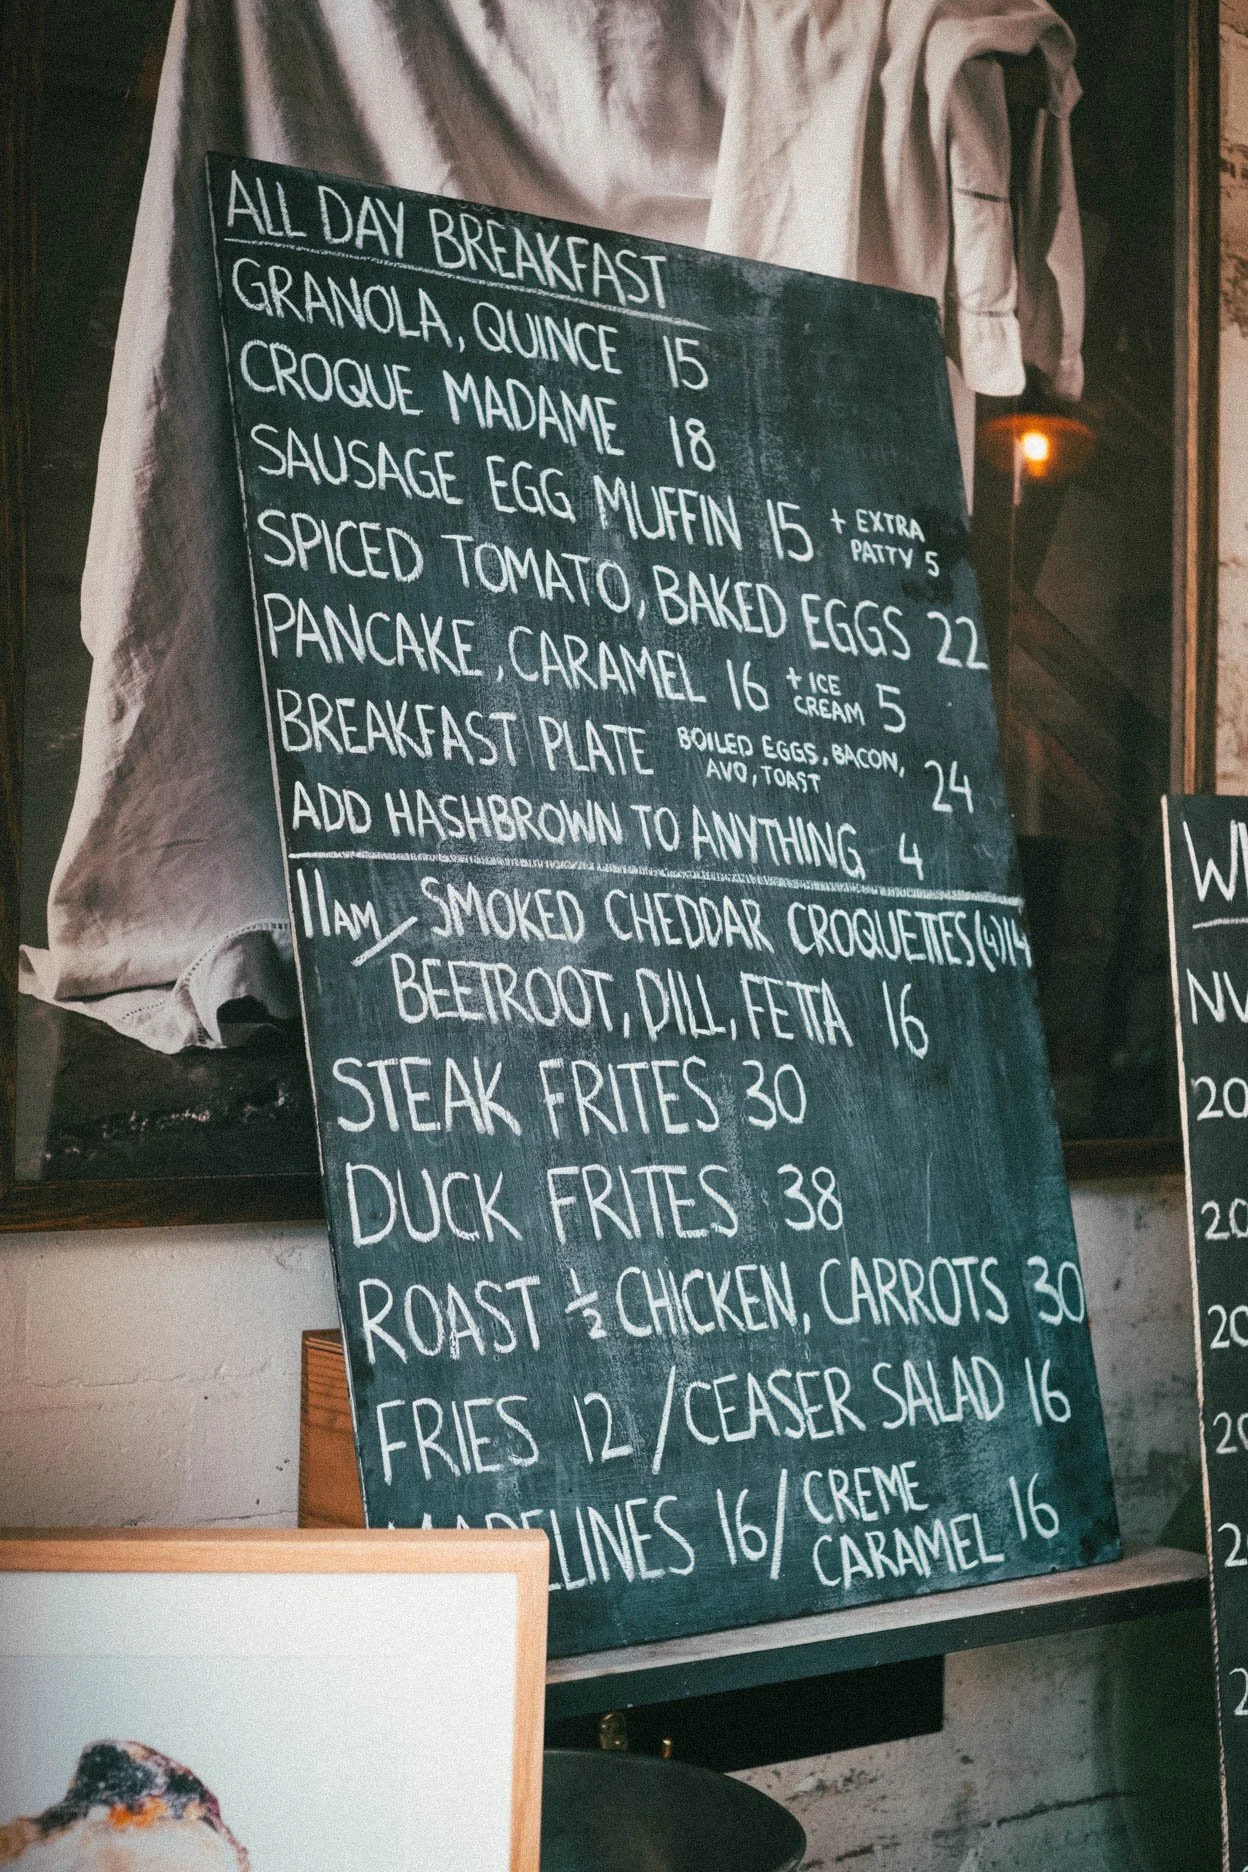 ALL DAY BREAKFAST
GRANOLA, QUINCE 15
CROQUE MADAME 18
SAUSAGE EGG MUFFIN 15 + EXTRA
PATTY 5
SPICED TOMATO, BAKED EGGS 22
PANCAKE, CARAMEL 16 + ICE
CREAM 5
BREAKFAST PLATE BOILED EGGS, BACON,
AVO, TOAST 24
ADD HASHBROWN TO ANYTHING 4
11AM / SMOKED CHEDDAR CROQUETTES (4) 14
BEETROOT, DILL, FETTA 16
STEAK FRITES 30
DUCK FRITES 38
ROAST ½ CHICKEN, CARROTS 30
FRIES 12 / CEASER SALAD 16
MADELINES 16 / CREME
CARAMEL 16